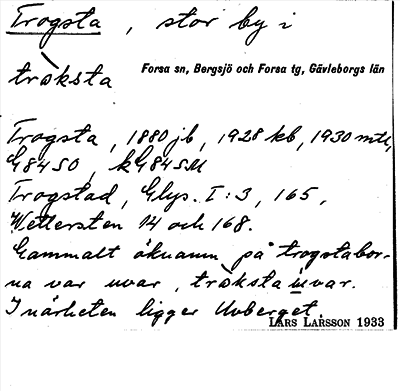 Trogsta, stor by i
tràksta Forsa sn, Bergsjö och Forsa tg, Gävleborgs län
Trogsta, 1880 jb, 1928 kb, 1930 mtl,
G84SO, kG84SM
Trogstad, Glys. I:3, 165,
Wettersten 14 och 168.
Gammalt öknamn på trogstabor-
na var uvar, tràksta uvar.
I närheten ligger Uvberget.
LARS LARSSON 1933